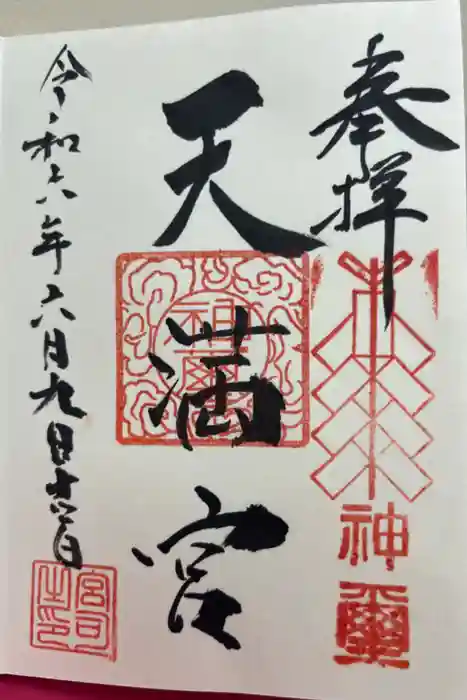 奉拝
天満宮
神璽
令和六年六月九日
宮司之印